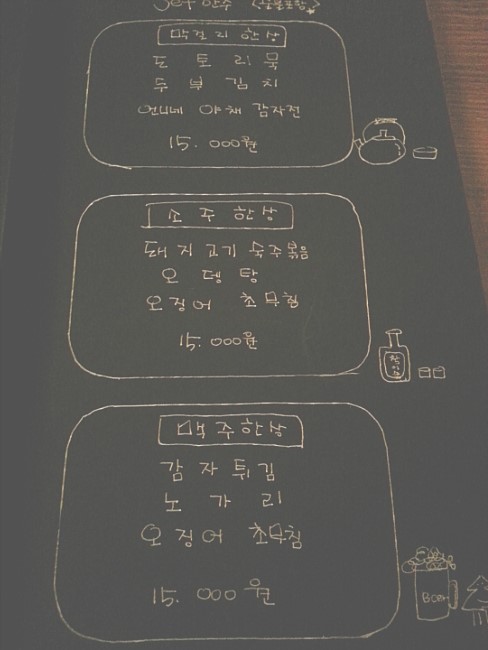 Set 안주
막걸리한상
도토리묵
두부김치
언니네 야채 감자전
15.000원
소주한상
돼지고기 숙주볶음
오뎅탕
오징어 초무침
15.000원
맥주한상
감자튀김
노가리
오징어 초무침
15.000원
Beer